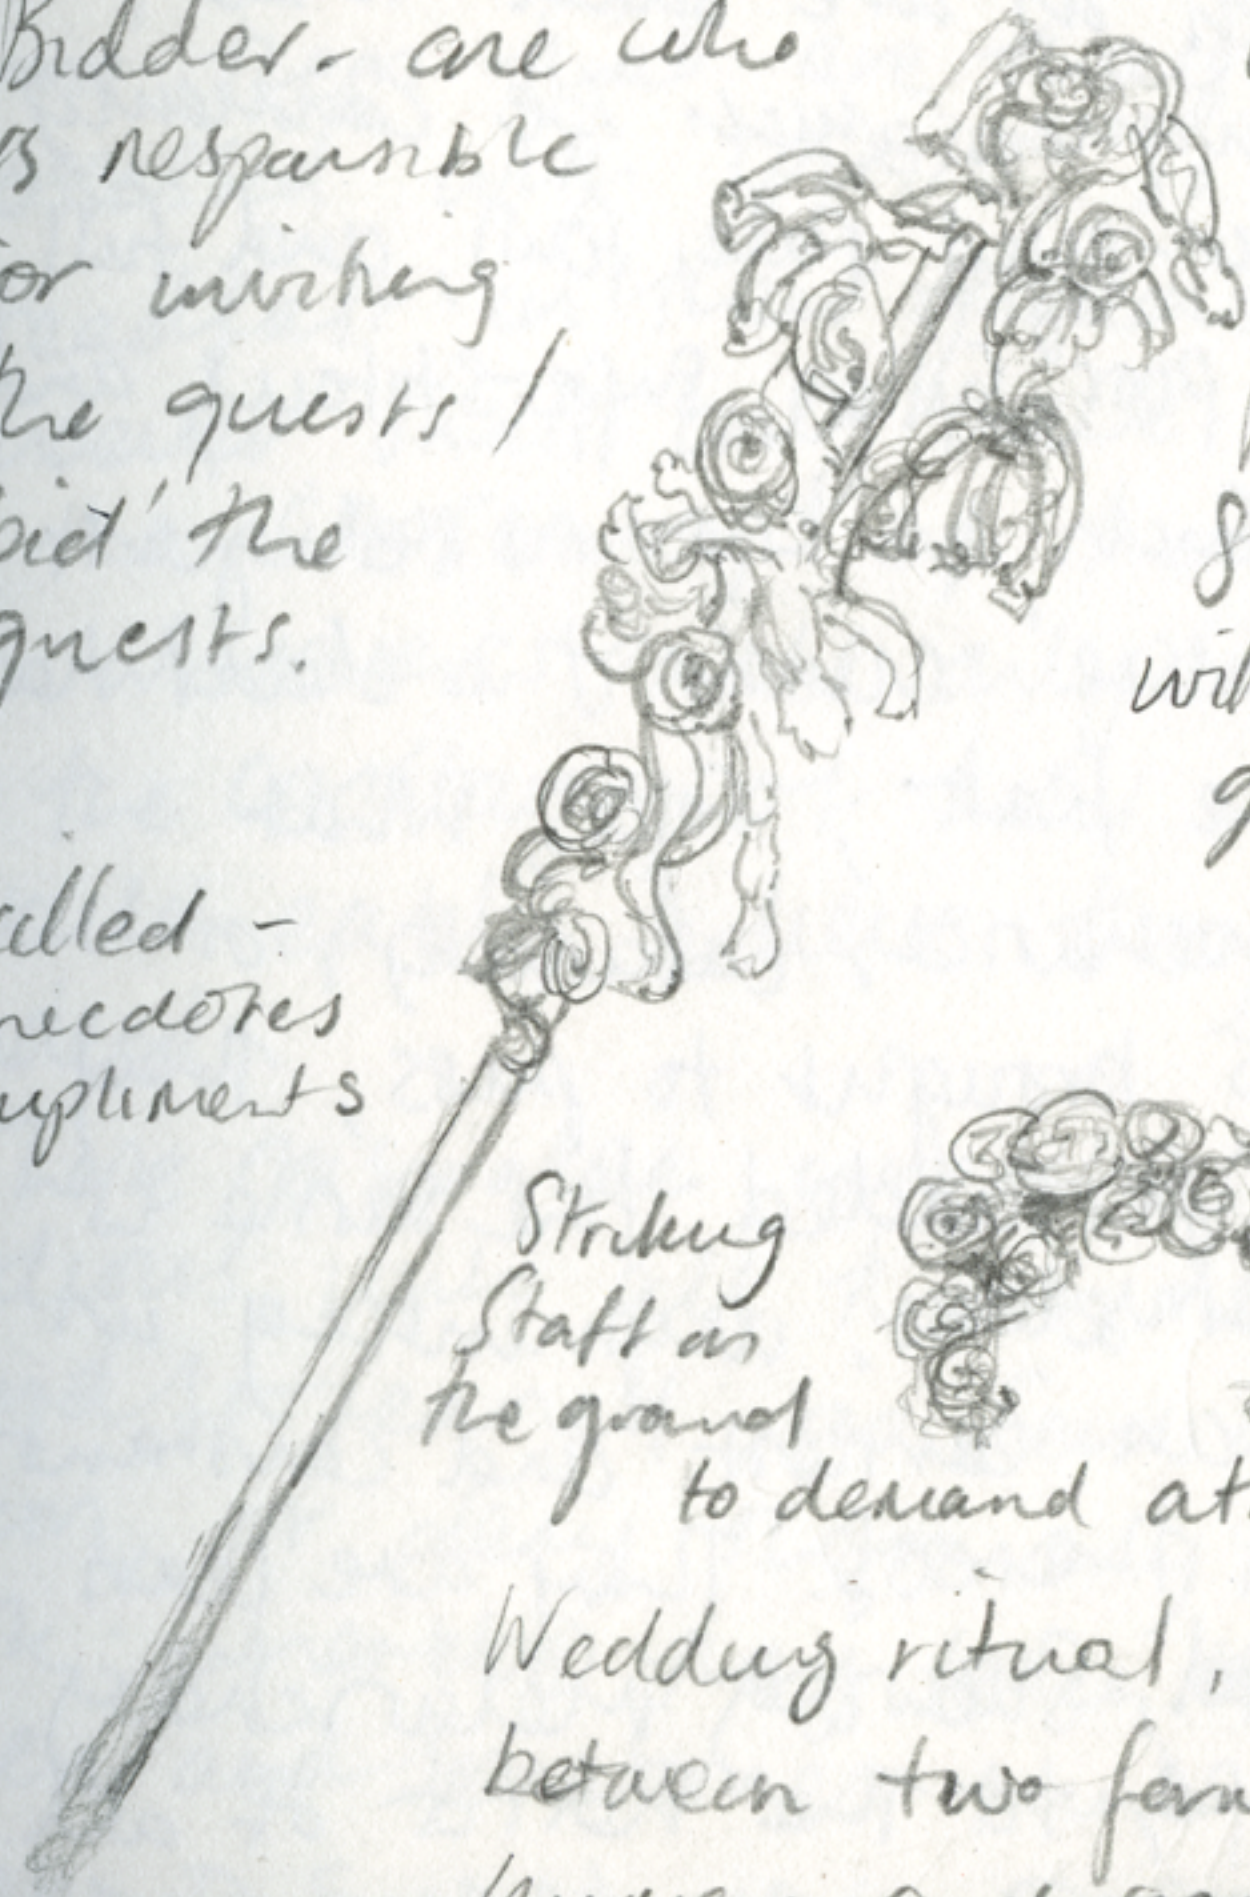 Bidder - one who
is responsible
for inviting
the guests /
bid' the
guests.
will
called -
necdotes
mpliments
Striking
Staff on
the ground
to demand at
Wedding ritual,
between two fam